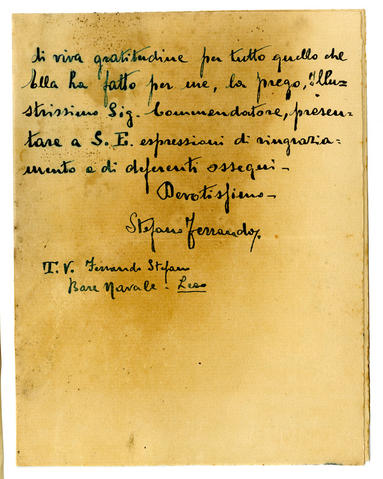 di viva gratitudine per tutto quello che
Ella ha fatto per me, la prego, Illu-
strissimo Sig. Commendatore, presen-
tare a S. E. espressioni di ringrazia-
mento e di deferenti ossequi -
Devotissimo -
Stefano Ferrando
T. V. Ferrando Stefano
Base Navale - Lero